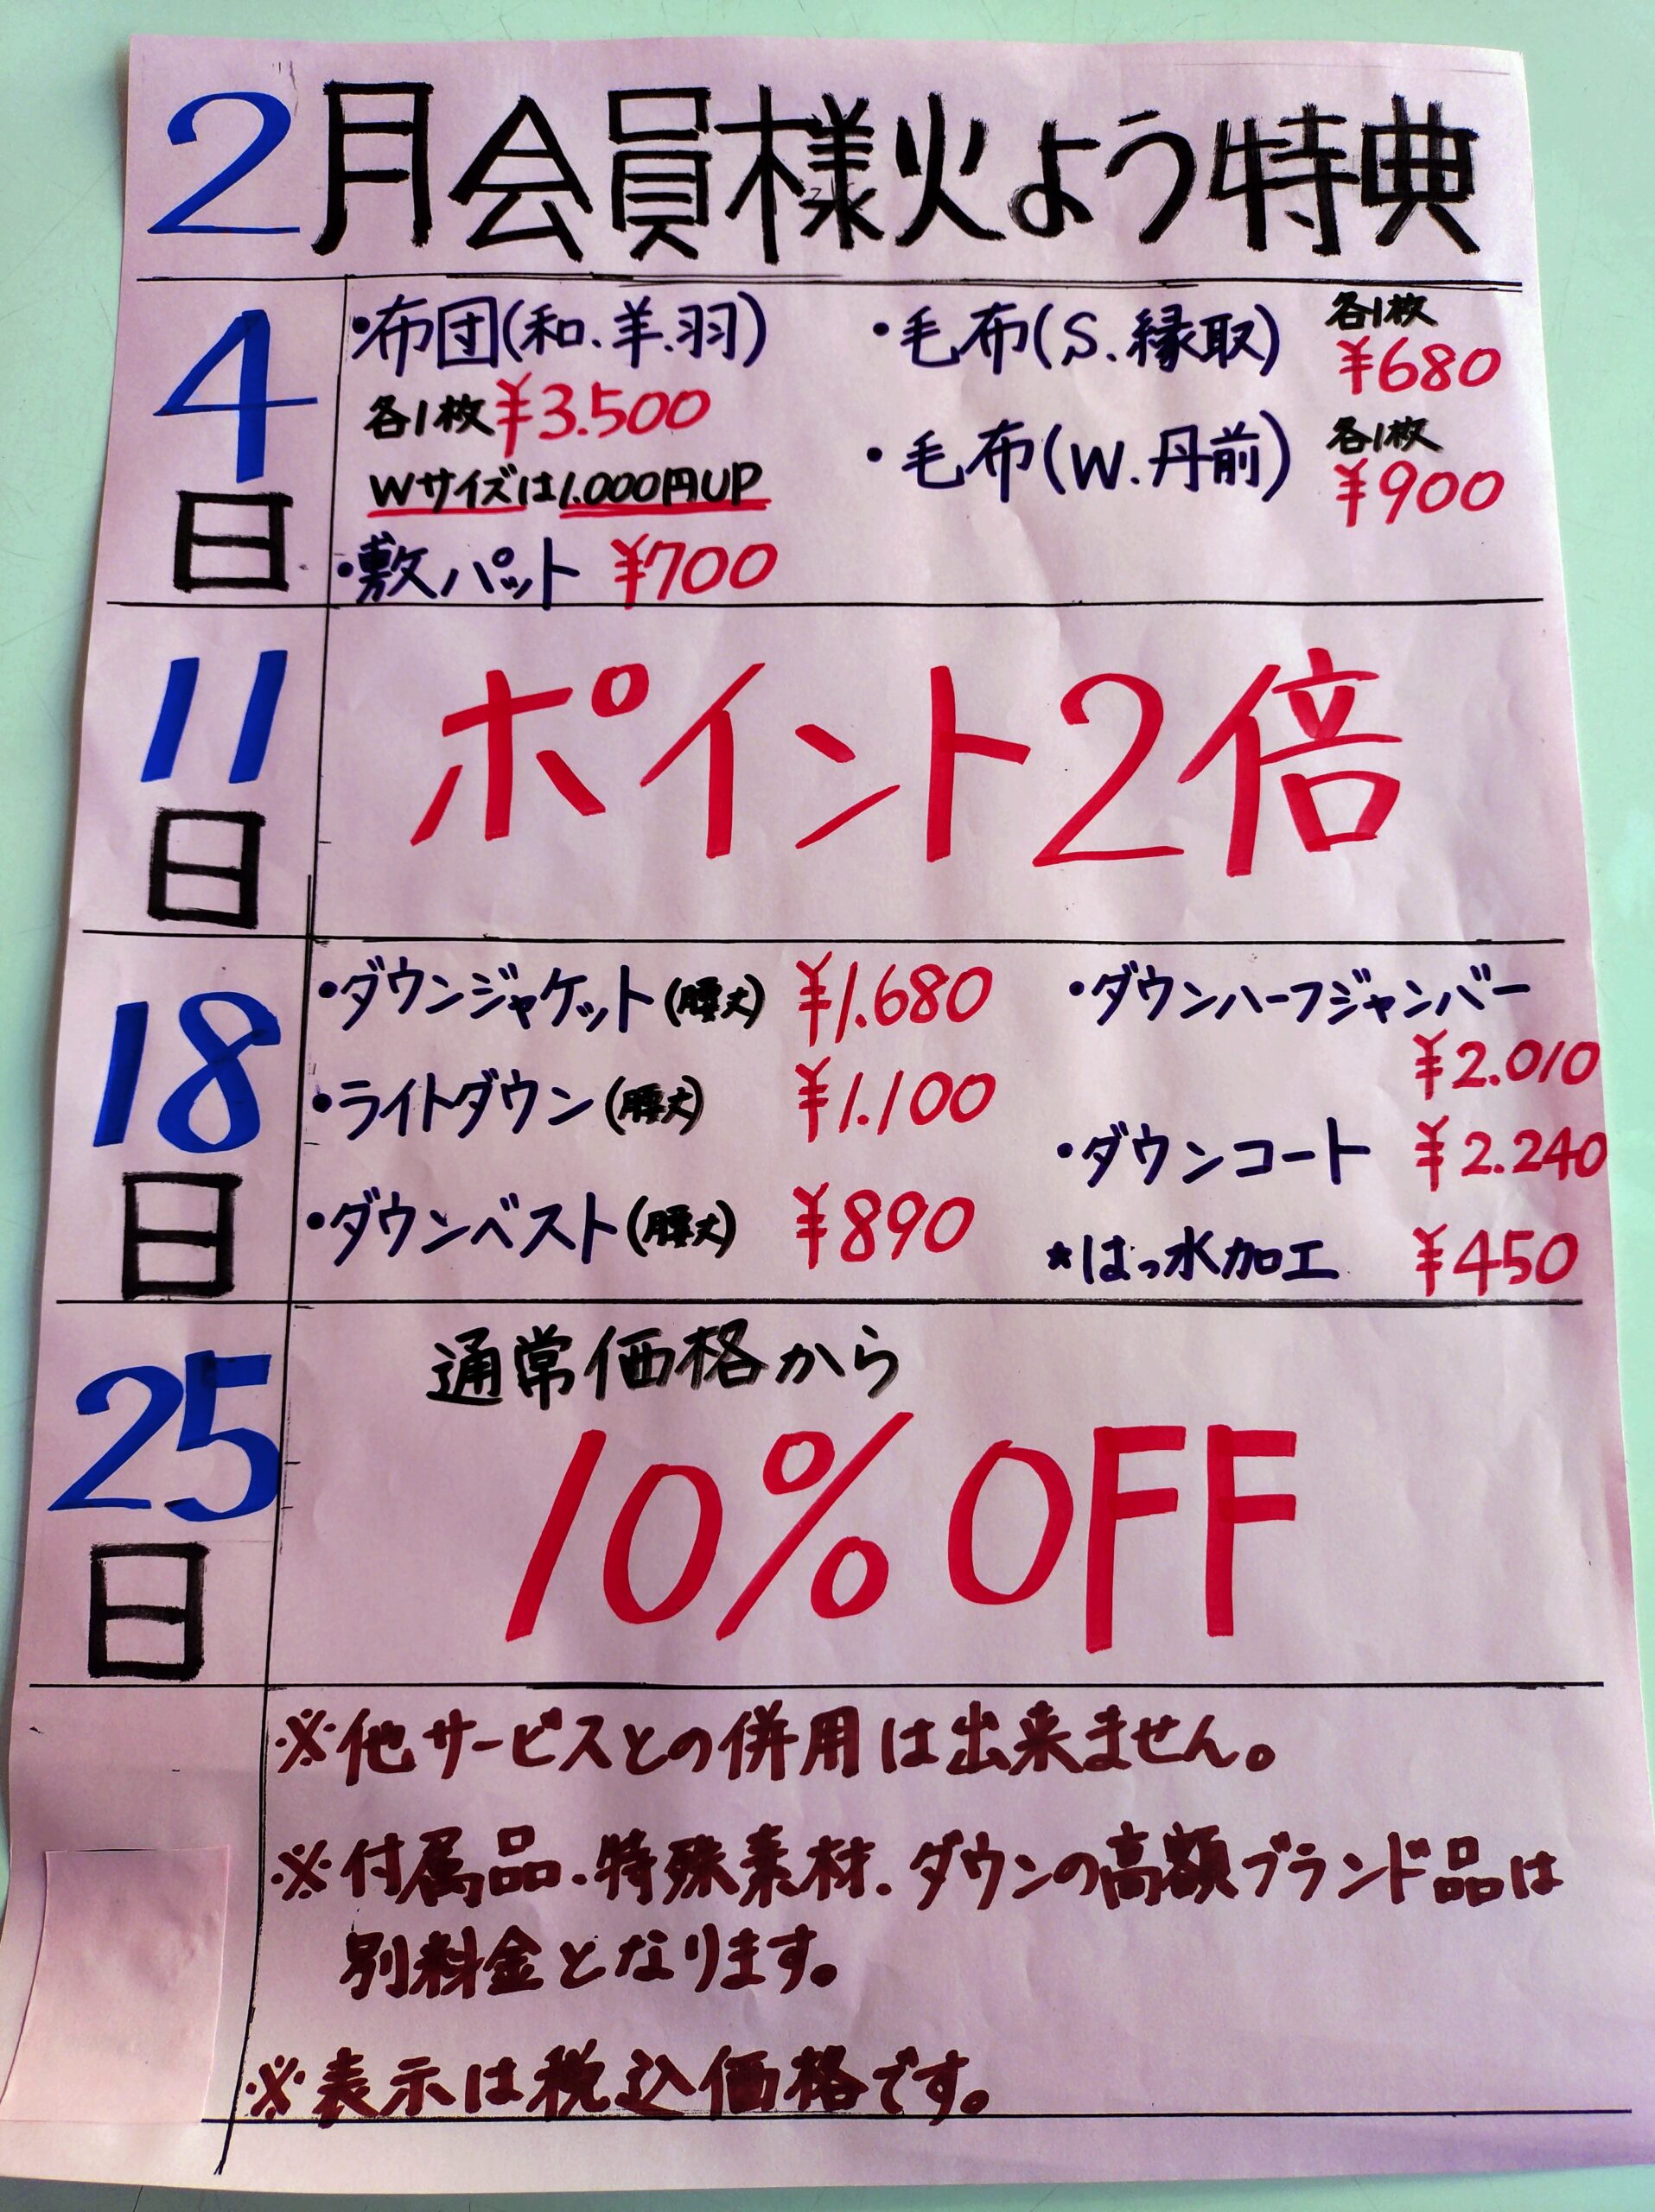 2月会員様火よう特典
4日
・布団(和.羊.羽)
各1枚¥3.500
Wサイズは1.000円UP
・敷パット ¥700
・毛布(S.縁取) 各1枚 ¥680
・毛布(W.丹前) 各1枚 ¥900
11日
ポイント2倍
18日
・ダウンジャケット(腰丈) ¥1.680
・ライトダウン(腰丈) ¥1.100
・ダウンベスト(腰丈) ¥890
・ダウンハーフジャンバー
¥2.010
・ダウンコート ¥2.240
*はっ水加工 ¥450
25日
通常価格から
10%OFF
※他サービスとの併用は出来ません。
※付属品.特殊素材.ダウンの高額ブランド品は
別料金となります。
※表示は税込価格です。